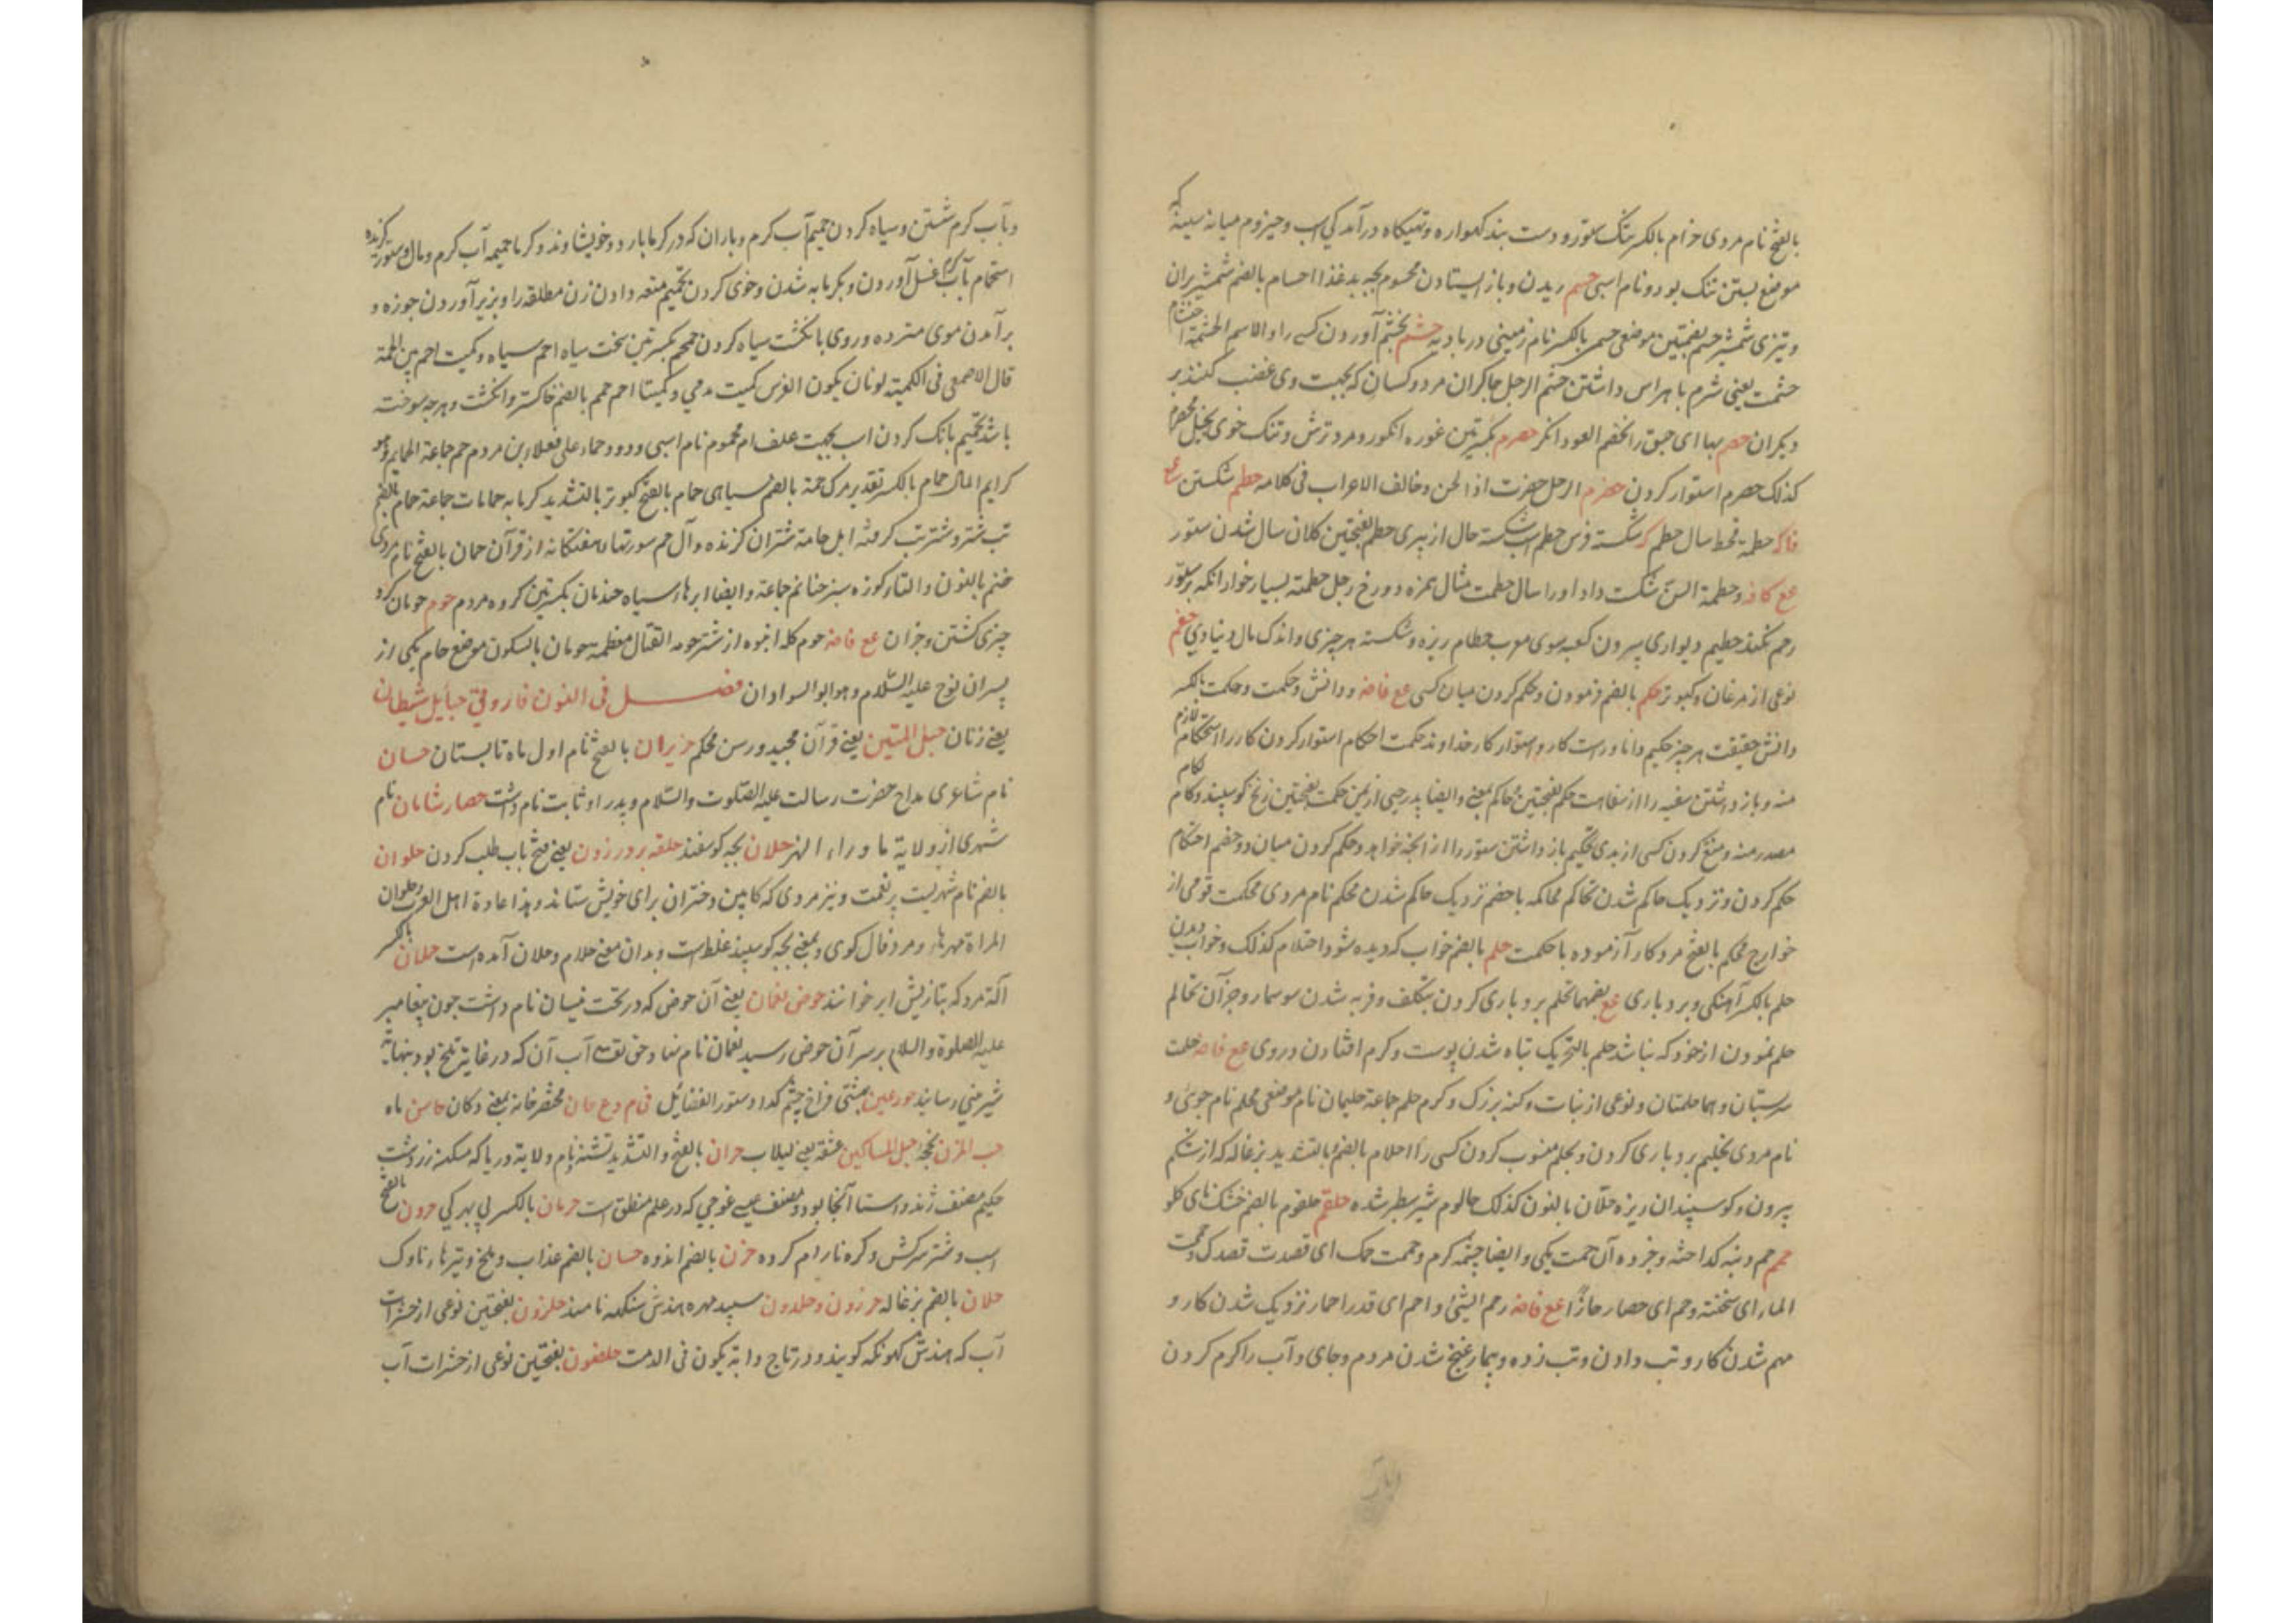 بالفتح نام مردی حزام بالکسر تنک ستور و دست بند کهواره و تهیکاه درآمدکی اسب و حیزوم میانه سینه که
موضع بستن تنک بود و نام اسبی حسم بریدن و باز ایستادن محسوم بچه بد غذا احسام بالضم شمشیر بران
و تیزی شمشیر حسم بضمتین موضعی حسم بالکسر نام زمینی در بادیه حشم بخشم آوردن کسی را و الاسم الحشمة احتشام
حشمت یعنی شرم با هراس داشتن حشم الرجل چاکران مرد و کسان که بجهت وی غضب کنند بر
دیکران حصم بها ای حبق و انحصم العود انکسر حصرم بکسرتین غوره انکور و مرد ترش و تنک خوی بخیل محصرم
کذلک حصرم استوار کردن حضرم الرجل حضرمة اذا لحن و خالف الاعراب فی کلامه حطم شکستن مع
فاکه حطمة قحط سال حطم کر شکسته فرس حطم اسب شکسته حال از پیری حطم بفتحتین کلان سال شدن ستور
مع کافه و حطمة السن شکست داد او را سال حطمت مثال همزه دوزخ رجل حطمته بسیار خوار انکه بر ستور
رحم نکند حطیم دیواری بیرون کعبه سوی مغرب حطام ریزه و شکسته هر چیزی و اندک مال دنیاوی حقم
نوعی از مرغان و کبوتر حکم بالضم فرمودن و حکم کردن میان کسی مع فاضه و دانش و حکمت و حکمت بالکسر
دانش حقیقت هر چیز حکیم دانا و راست کار و استوار کار خداوند حکمت احکام استوار کردن کار را استحکام لازم
منه و باز داشتن سفیه را از سفاهت حکم بفتحتین حاکم بمعنی و ایضا پدر حیی از یمن حکمت بفتحتین زنخ کوسپند و کام لکام
مصدر منه و منع کردن کسی از بدی تحکیم باز داشتن ستور را از انچه خواهد و حکم کردن میان دو خصم احتکام
حکم کردن و نزدیک حاکم شدن تحاکم محاکمه با خصم نزدیک حاکم شدن محکم نام مردی محکمت قومی از
خوارج محکم بالفتح مرد کار آزموده با حکمت حلم بالضم خواب که دیده شود احتلام کذلک و خواب دیدن
حلم بالکسر آهنکی و بردباری مع بضمها تحلم بردباری کردن بتکلف و فربه شدن سوسمار و جز آن تحالم
حلم نمودن از خود که نباشد حلم بالتحریک تباه شدن پوست و کرم افتادن در وی مع فاضه حلمت
سرپستان و هما حلمتان و نوعی از نبات و کنه بزرک و کرم حلم جماعة حلیمان نام موضعی محلم نام جویی و
نام مردی تحلیم بردباری کردن و بحلم منسوب کردن کسی را احلام بالضم بالتشدید بزغاله که از شکم
بیرون و کوسپندان ریزه حلّان بالنون کذلک حالوم شیر سطبر شده حلقم حلقوم بالضم خشک نای کلو
حمم حم دنبه کداخته و جزده آن حمت یکی و ایضا چشمه کرم و حممت حمک ای قصدت قصدک و حممت
الماء ای سخنته و حم ای حصار حارًا مع فاضه رحم الشیٔ و احم ای قدر احمار نزدیک شدن کار و
مهم شدن کار و تب دادن و تب زده و بیمار غنج شدن مردم و جای و آب را کرم کردن
وبآب
وبآب کرم شستن و سیاه کردن حمیم آب کرم و باران که در کرما بارد و خویشاوند و کرما حمیمه آب کرم و مال و ستور کزیده
استحمام بآب کرم غسل آوردن و بکرمابه شدن و خوی کردن تحمیم متعه دادن زن مطلقه را و بزیر آوردن جوزه و
برآمدن موی سترده و روی بانکشت سیاه کردن حمحم بکسرتین سخت سیاه احم سیاه و کمیت احم بین الحمة
قال الاصمعی فی الکمیته لونان یکون الفرس کمیت مدمی و کمیتا احم حمم بالضم خاکستر و انکشت و هرچه سوخته
باشد تحمیم بانک کردن اسب بجهت علف ام محموم نام اسبی و دود و حماء علی فعلاء بن مردم حم جماعة الحمایم و هو
کرایم المال حمام بالکسر تقدیر مرک حمة بالضم سیاهی حمام بالفتح کبوتر بالتشدید کرمابه حمامات جماعة حمام بالضم
تب شتر و شتر تب کرفته ابل حامة شتران کزنده و آل حم سورتهاء هفتکانه از قرآن حمان بالفتح نام مردی
حنتم بالنون و التاء کوزه سبز حناتم جماعة و ایضا ابرهاء سیاه حندمان بکسرتین کروه مردم حوم حومان کرد
چیزی کشتن و جز آن مع فاضه حوم کله انبوه از شتر حومة القتال معظمه حومان بالسکون موضع حام یکی از
پسران نوح علیه السّلام و هو ابو السوادان فصـــل فی النون فاروقی حبایل شیطان
یعنی زنان حبل المتین یعنی قرآن مجید و رسن محکم حزیران بالفتح نام اول ماه تابستان حسان
نام شاعری مداح حضرت رسالت علیه الصّلوت والسّلام و پدر او ثابت نام داشت حصار شامان نام
شهری از ولایة ما وراء النهر حلان بچه کوسفند حلقه بر در زدن یعنی فتح باب طلب کردن حلوان
بالضم نام شهریست پرنعمت و نیز مردی که کابین دختران برای خویش ستاند و هذا عادة اهل العرب و حلوان
المراة مهرها و مزد فال کوی و بمعنی بچه کوسپند غلط است و بدان معنی حلام و حلان آمده است حلان بالکسر
آلة مرد که بتازیش ایر خوانند حوض نعمان یعنی آن حوض که در تخت نیسان نام داشت چون پیغامبر
علیه الصلوة والسلام بر سر آن حوض رسید نعمان نام نهاد حق تعالی آب آن که در غایة تلخ بود بنهایة
شیرینی رسانید حور عین بهشتی فراخ چشم کذا دستور الفضائل فی م وع حان مختصر خانه بمعنی دکان حاسن ماه
حب المزن نخج حبل المساکین عشقه یعنی لبلاب حران بالفتح و التشدید تشنه و نام ولایة دریا که مسکن زردشت
حکیم مصنف ژند و استا آنجا بود و مصنف عیسی غوجی که در علم منطق است حرمان بالکسر بی بهرکی حرون بالفتح
اسب و شتر سرکش و کره نارام کرده حزن بالضم اندوه حسبان بالضم عذاب و ملخ و تیرهاء ناوک
حلان بالضم بزغاله حرزون و حلدون سپید مهره هندش سنکهه نامند حلزون بفتحتین نوعی از حشرات
آب که هندش کهونکه کویند و در تاج دابة یکون فی الرمث حلصون بفتحتین نوعی از حشرات آب